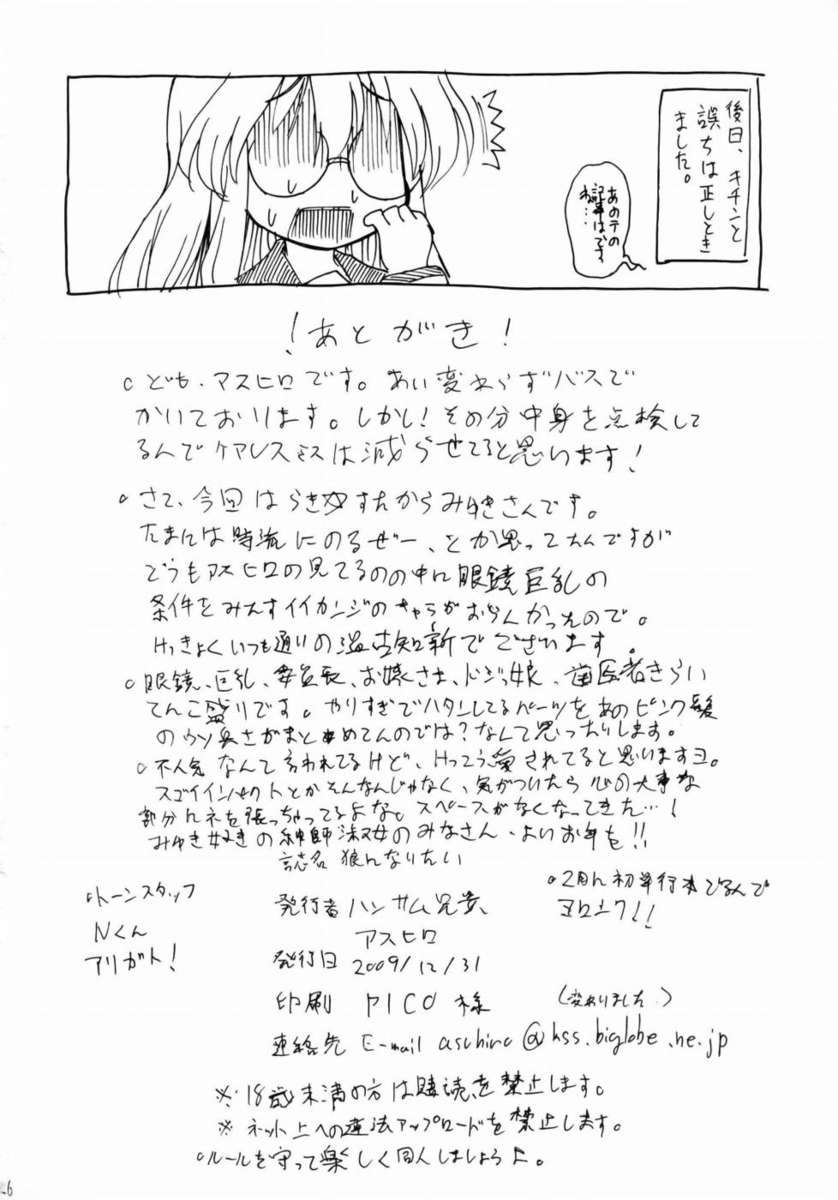 後日、キチンと
誤ちは正しとき
ました。
あのテの
記事はです
ね…
!あとがき!
○ども、アスヒロです。あい変わらずバスで
かいております。しかし!その分中身を点検して
るんでケアレスミスは減らせてると思います!
○さて、今回はらき☆すたからみゆきさんです。
たまには時流にのるぜー、とか思ってたんですが
どうもアスヒロの見てるのの中に眼鏡巨乳の
条件をみたすイイカンジのキャラがおらんかったので。
けっきょくいつも通りの温古知新でございます。
○眼鏡、巨乳、委員長、お嬢さま、ドジっ娘、歯医者きらい
てんこ盛りです。やりすぎでハタンしてるパーツをあのピンク髪
のウソ臭さがまとめてんのでは?なんて思ったりします。
○不人気なんて言われてるけど、けっこう愛されてると思いますヨ。
スゴイインパクトとかそんなんじゃなく、気がついたら心の大事な
部分にネを張っちゃってるよな。スペースがなくなってきた…!
みゆき好きの紳師淑女のみなさん、よいお年を!!
誌名 狼んなりたい
発行者 ハンサム兄貴、
アスヒロ
発行日 2009/12/31
印刷 PICO 様
(変わりました)
連絡先 E-mail aschiro@kss.biglobe.ne.jp
○トーンスタッフ
Nくん
アリガト!
○2月に初単行本でるんで
ヨロシク!!
※18歳未満の方は購読を禁止します。
※ネット上への違法アップロードを禁止します。
○ルールを守って楽しく同人しましょうよ。